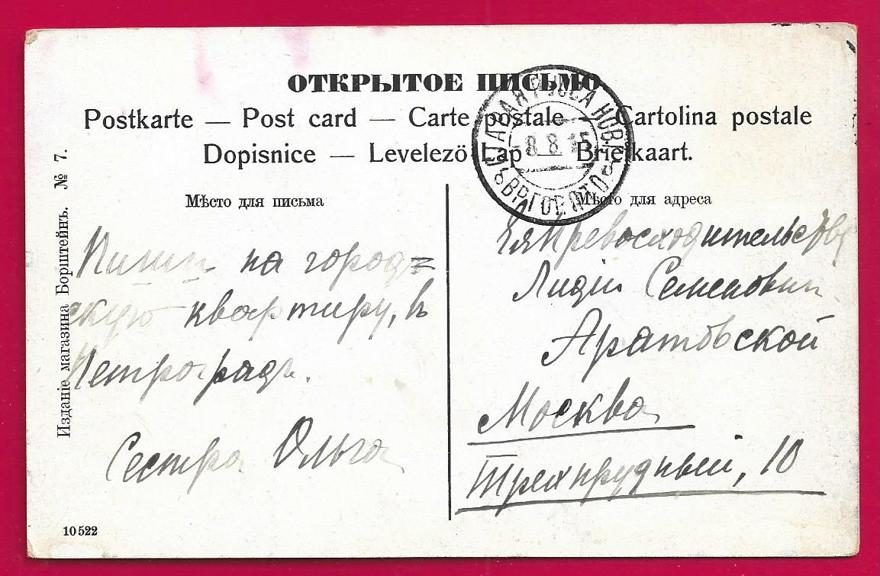 ОТКРЫТОЕ ПИСЬМО
Postkarte — Post card — Carte postale — Cartolina postale
Dopisnice — Levelező Lap — Briefkaart.
Мѣсто для письма
Мѣсто для адреса
СТАРАЯ РУССА НОВГ.
8 8 15
Пиши на город=
скую квартиру, въ
Петроградъ.
Сестра Ольга
Ея Превосходительству
Лидіи Семеновнѣ
Аратовской
Москва
Трехпрудный, 10
Изданіе магазина Борштейнъ. № 7.
10522